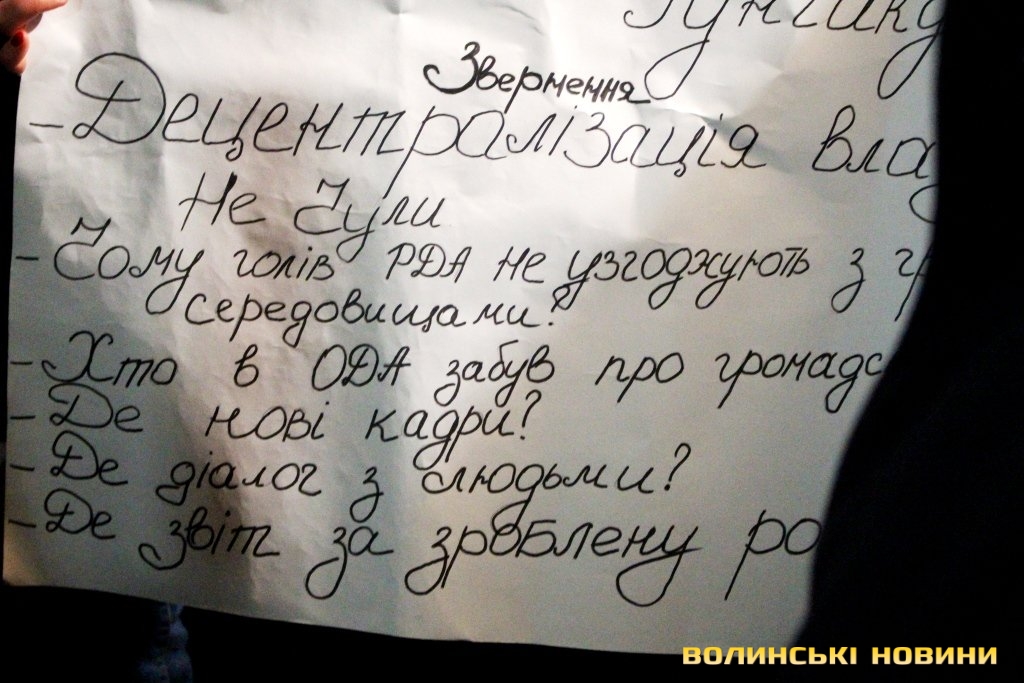 Звернення
- Децентралізація
Не Чули
- Чому голів РДА не узгоджують з
середовищами?
- Хто в ОДА забув про
- Де нові кадри?
- Де діалог з людьми?
- Де звіт за зроблену
ВОЛИНСЬКІ НОВИНИ